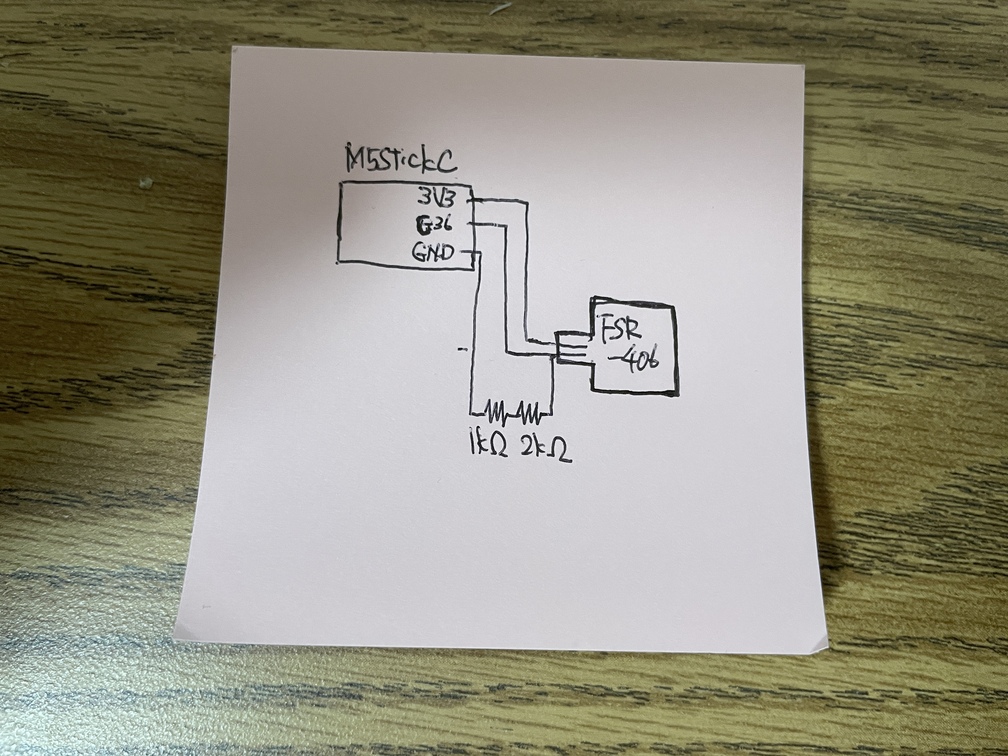 M5StickC
3V3
G36
GND
FSR
-406
1kΩ 2kΩ